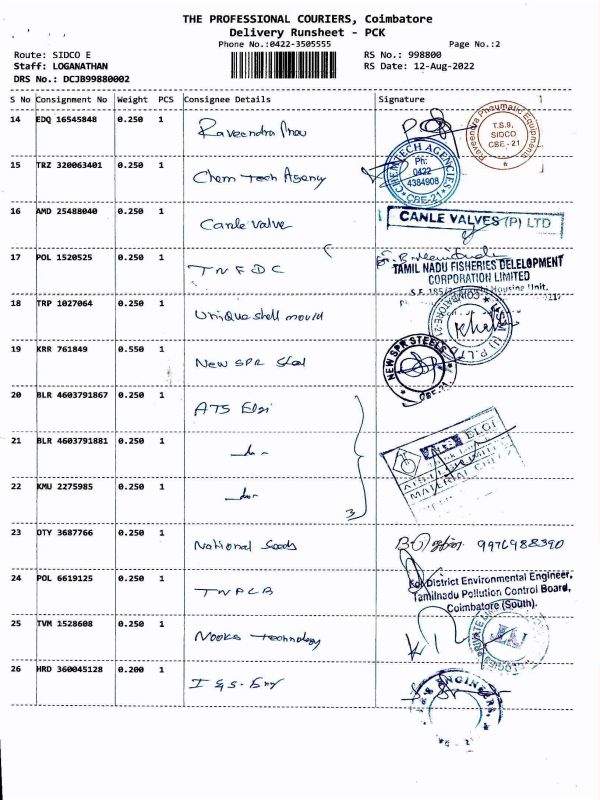 THE PROFESSIONAL COURIERS, Coimbatore
Delivery Runsheet - PCK
Phone No.:0422-3505555 Page No.:2
Route: SIDCO E RS No.: 998800
Staff: LOGANATHAN RS Date: 12-Aug-2022
DRS No.: DCJB99880002
S No Consignment No Weight PCS Consignee Details Signature
14 EDQ 16545848 0.250 1 Raveendra Pneu
Raveendra Pneumatic Equipments
T.S.9,
SIDCO
CBE - 21
15 TRZ 320063401 0.250 1 Chem Tech Agency
CHEMTECH AGENCIES
Ph:
0422
4384908
CBE-21
16 AMD 25488040 0.250 1 Canle valve
CANLE VALVES (P) LTD
17 POL 1520525 0.250 1 TNFDC
TAMIL NADU FISHERIES DELELOPMENT
CORPORATION LIMITED
Housing Unit.
18 TRP 1027064 0.250 1 Unique shell mould
COIMBATORE-21
(P) LTD
19 KRR 761849 0.550 1 New SPR Steel
NEW SPR STEELS
CBE-21.
20 BLR 4603791867 0.250 1 ATS Elgi
21 BLR 4603791881 0.250 1 -do-
ELGI
22 KMU 2275985 0.250 1 -do-
3
23 OTY 3687766 0.250 1 National Seeds
9976988390
24 POL 6619125 0.250 1 TNPCB
District Environmental Engineer,
Tamilnadu Pollution Control Board,
Coimbatore (South).
25 TVM 1528608 0.250 1 Nooks Technology
26 HRD 360045128 0.200 1 I G.S. Eng
ENGINEERS